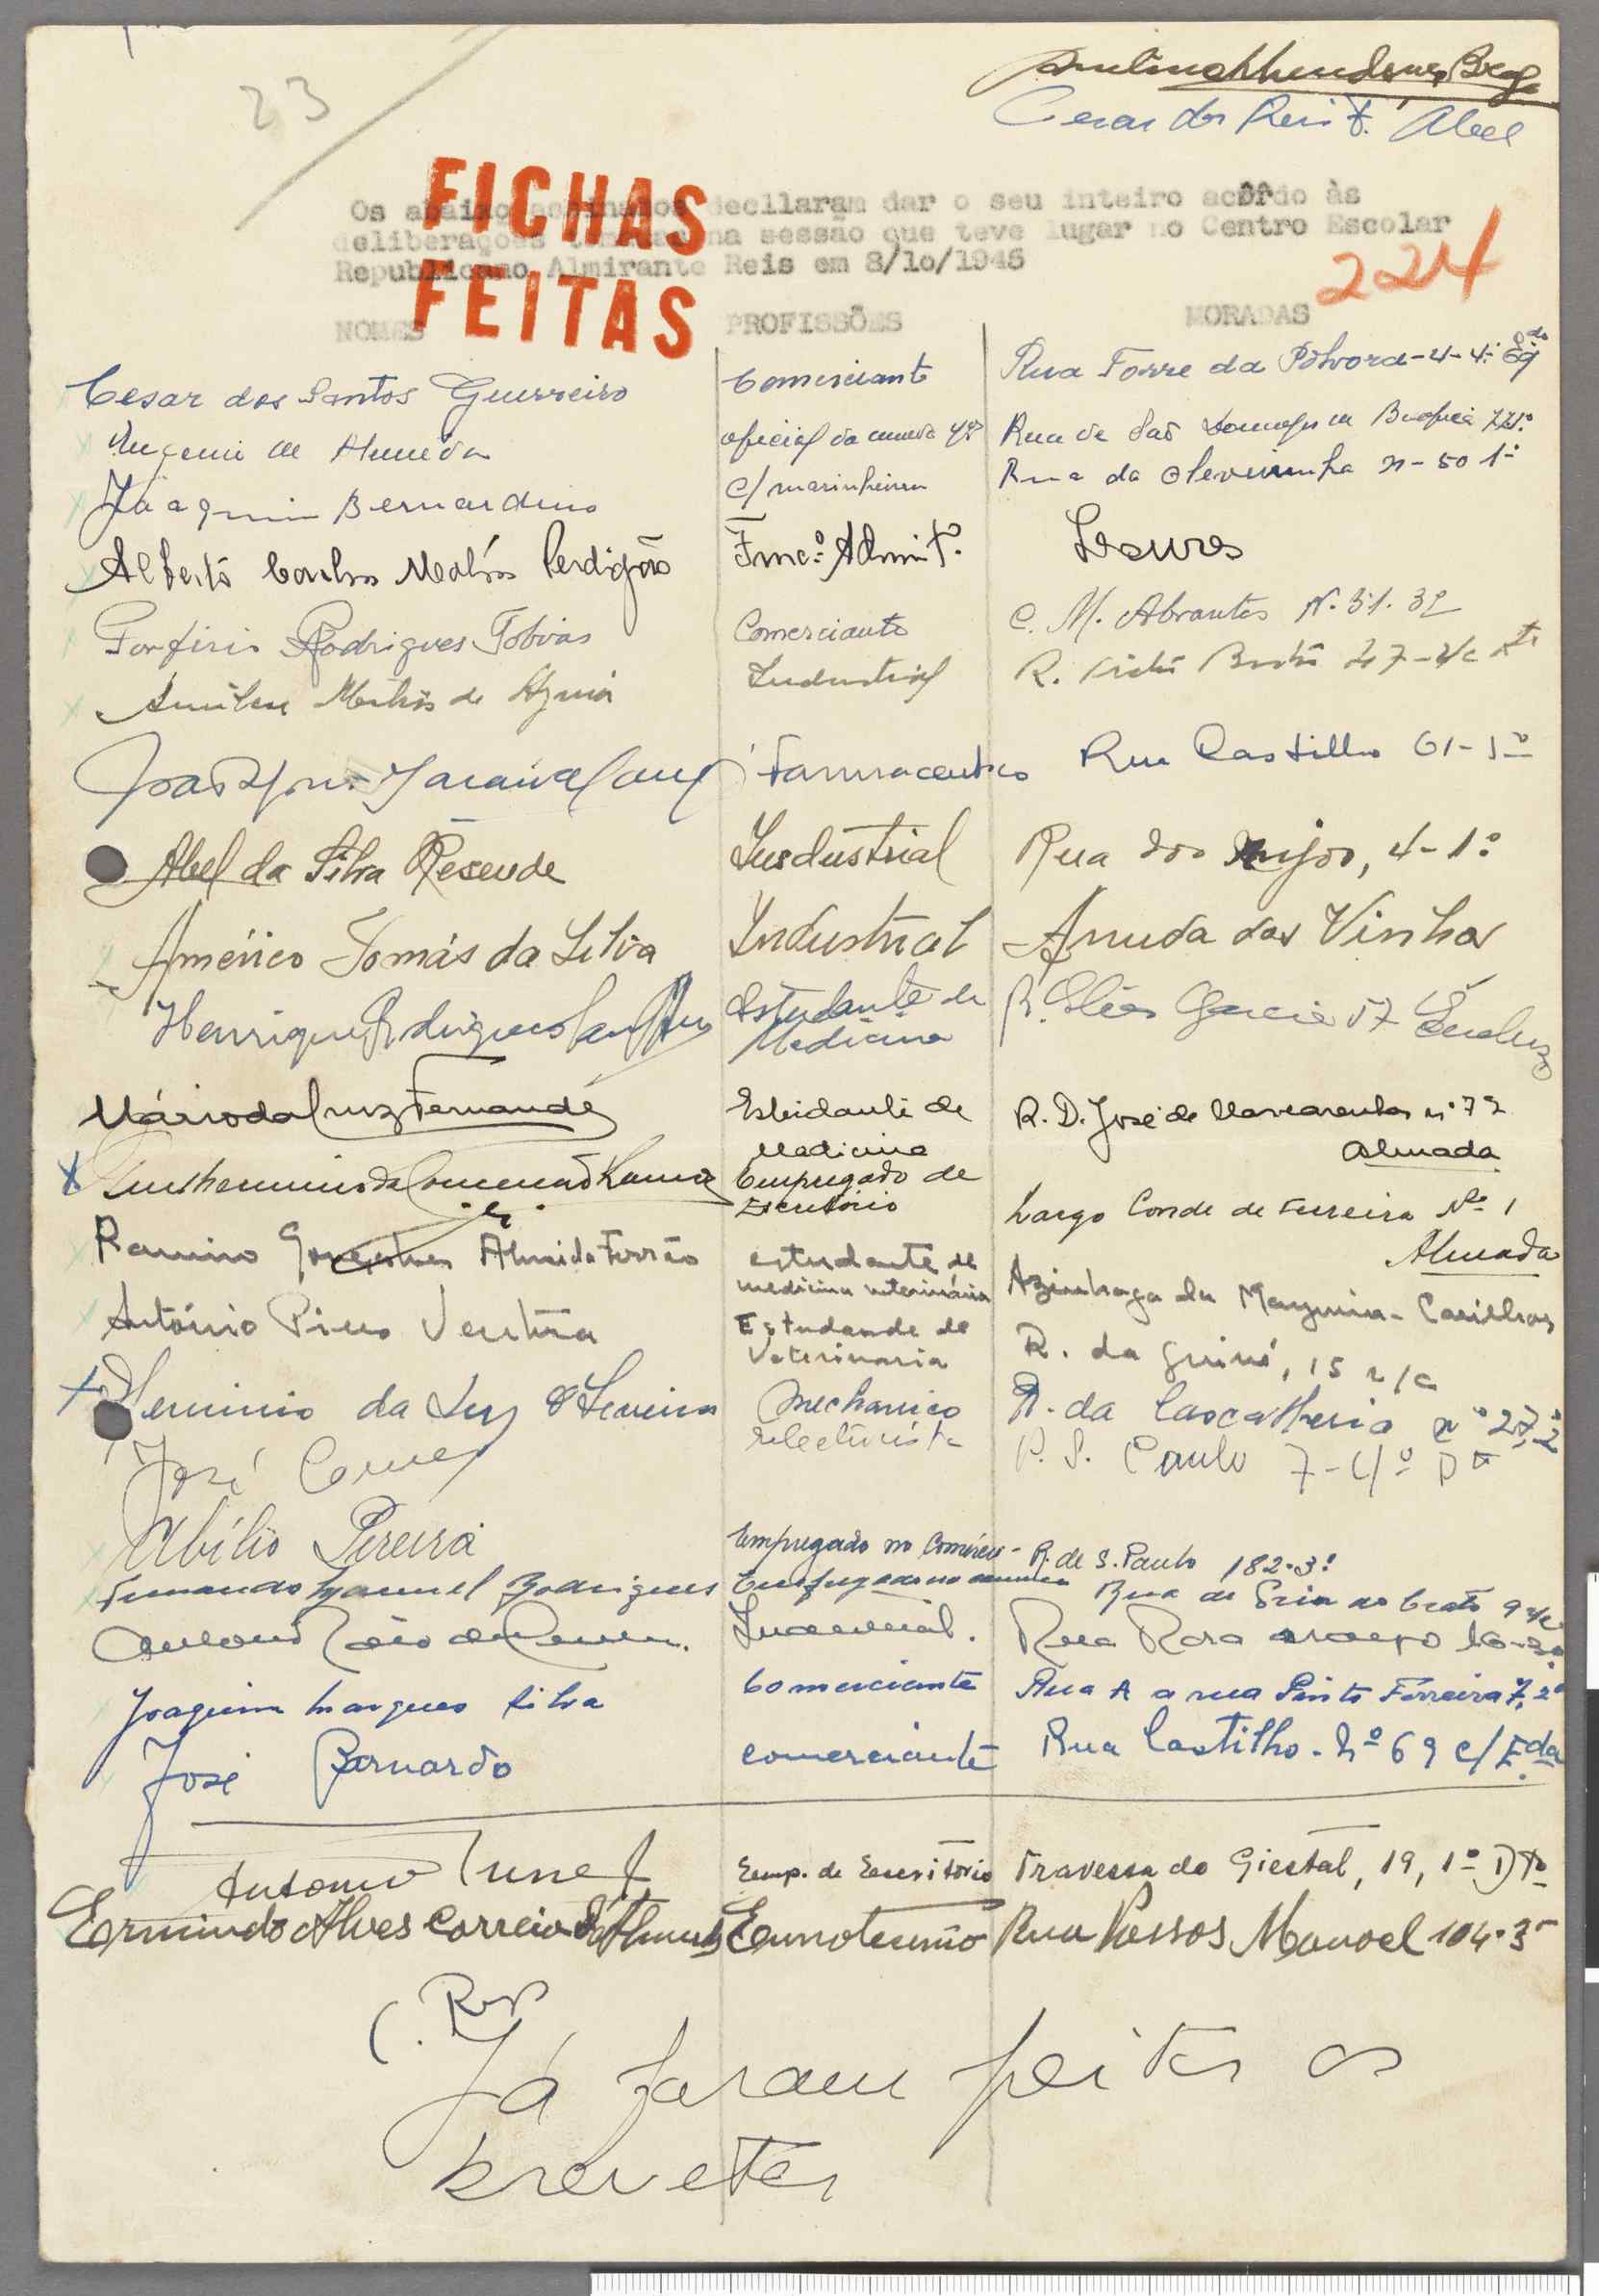 23
Cesar dos Reis F. Abel
FICHAS
FEITAS
Os abaixo assinados decllaram dar o seu inteiro acôrdo às
deliberações tomadas na sessão que teve lugar no Centro Escolar
Republicano Almirante Reis em 8/10/1945
224
NOMES PROFISSÕES MORADAS
Cesar dos Santos Guerreiro Comerciante Rua Torre da Polvora-4-4º
Eugenio de Almeida oficial da Rua de São Domingos Benfica
Joaquim Bernardino c/ marinheiro Rua da Oliveirinha n-50 1º
Alberto Carlos Matos Perdigão Func.º Admit.º Loures
Porfirio Rodrigues Tobias Comerciante C. M. Abrantes N. 31. 32
de Industrial R. 47-
Farmaceutico Rua Castilho 61-1º
Abel da Silva Resende Industrial Rua dos Anjos, 4-1º
Américo Tomás da Silva Industrial Arruda dos Vinhos
Henrique Rodrigues Estudante de Medicina R. Elias Garcia 57
Mário da Cruz Fernandes Estudante de Medicina R. D. José de Mascarenhas nº 72 Almada
da Empregado de Escritório Largo Conde de Ferreira Nº 1 Almada
Ramiro Gonçalves Almeida Ferrão estudante de medicina veterinária Azinhaga da Margueira - Cacilhas
António Pires Ventura Estudande de Veterinaria R. da Guiné, 15 r/c
Herminio da Luz Oliveira Mechanico R. da Cascalheira nº 27, 2º
José Gomes electricista R. S. Paulo 7-4º Dto
Abílio Pereira Empregado no Comércio - R. de S. Paulo 182-3º
Fernando Manuel Rodrigues Empregado no comercio Rua do Prior do Crato 9 r/c
Industrial. Rua Rosa Araujo 16-3º
Joaquim Marques Silva Comerciante Rua A a rua Pinto Ferreira 7, 2º
José Bernardo comerciante Rua Castilho. Nº 69 c/ Eda
Antonio Tunes Emp. de Escritório Travessa do Giestal, 19, 1º Dto
Ermindo Alves Correia d'Almeida Rua Passos Manoel 104-3º
Já foram feitos os